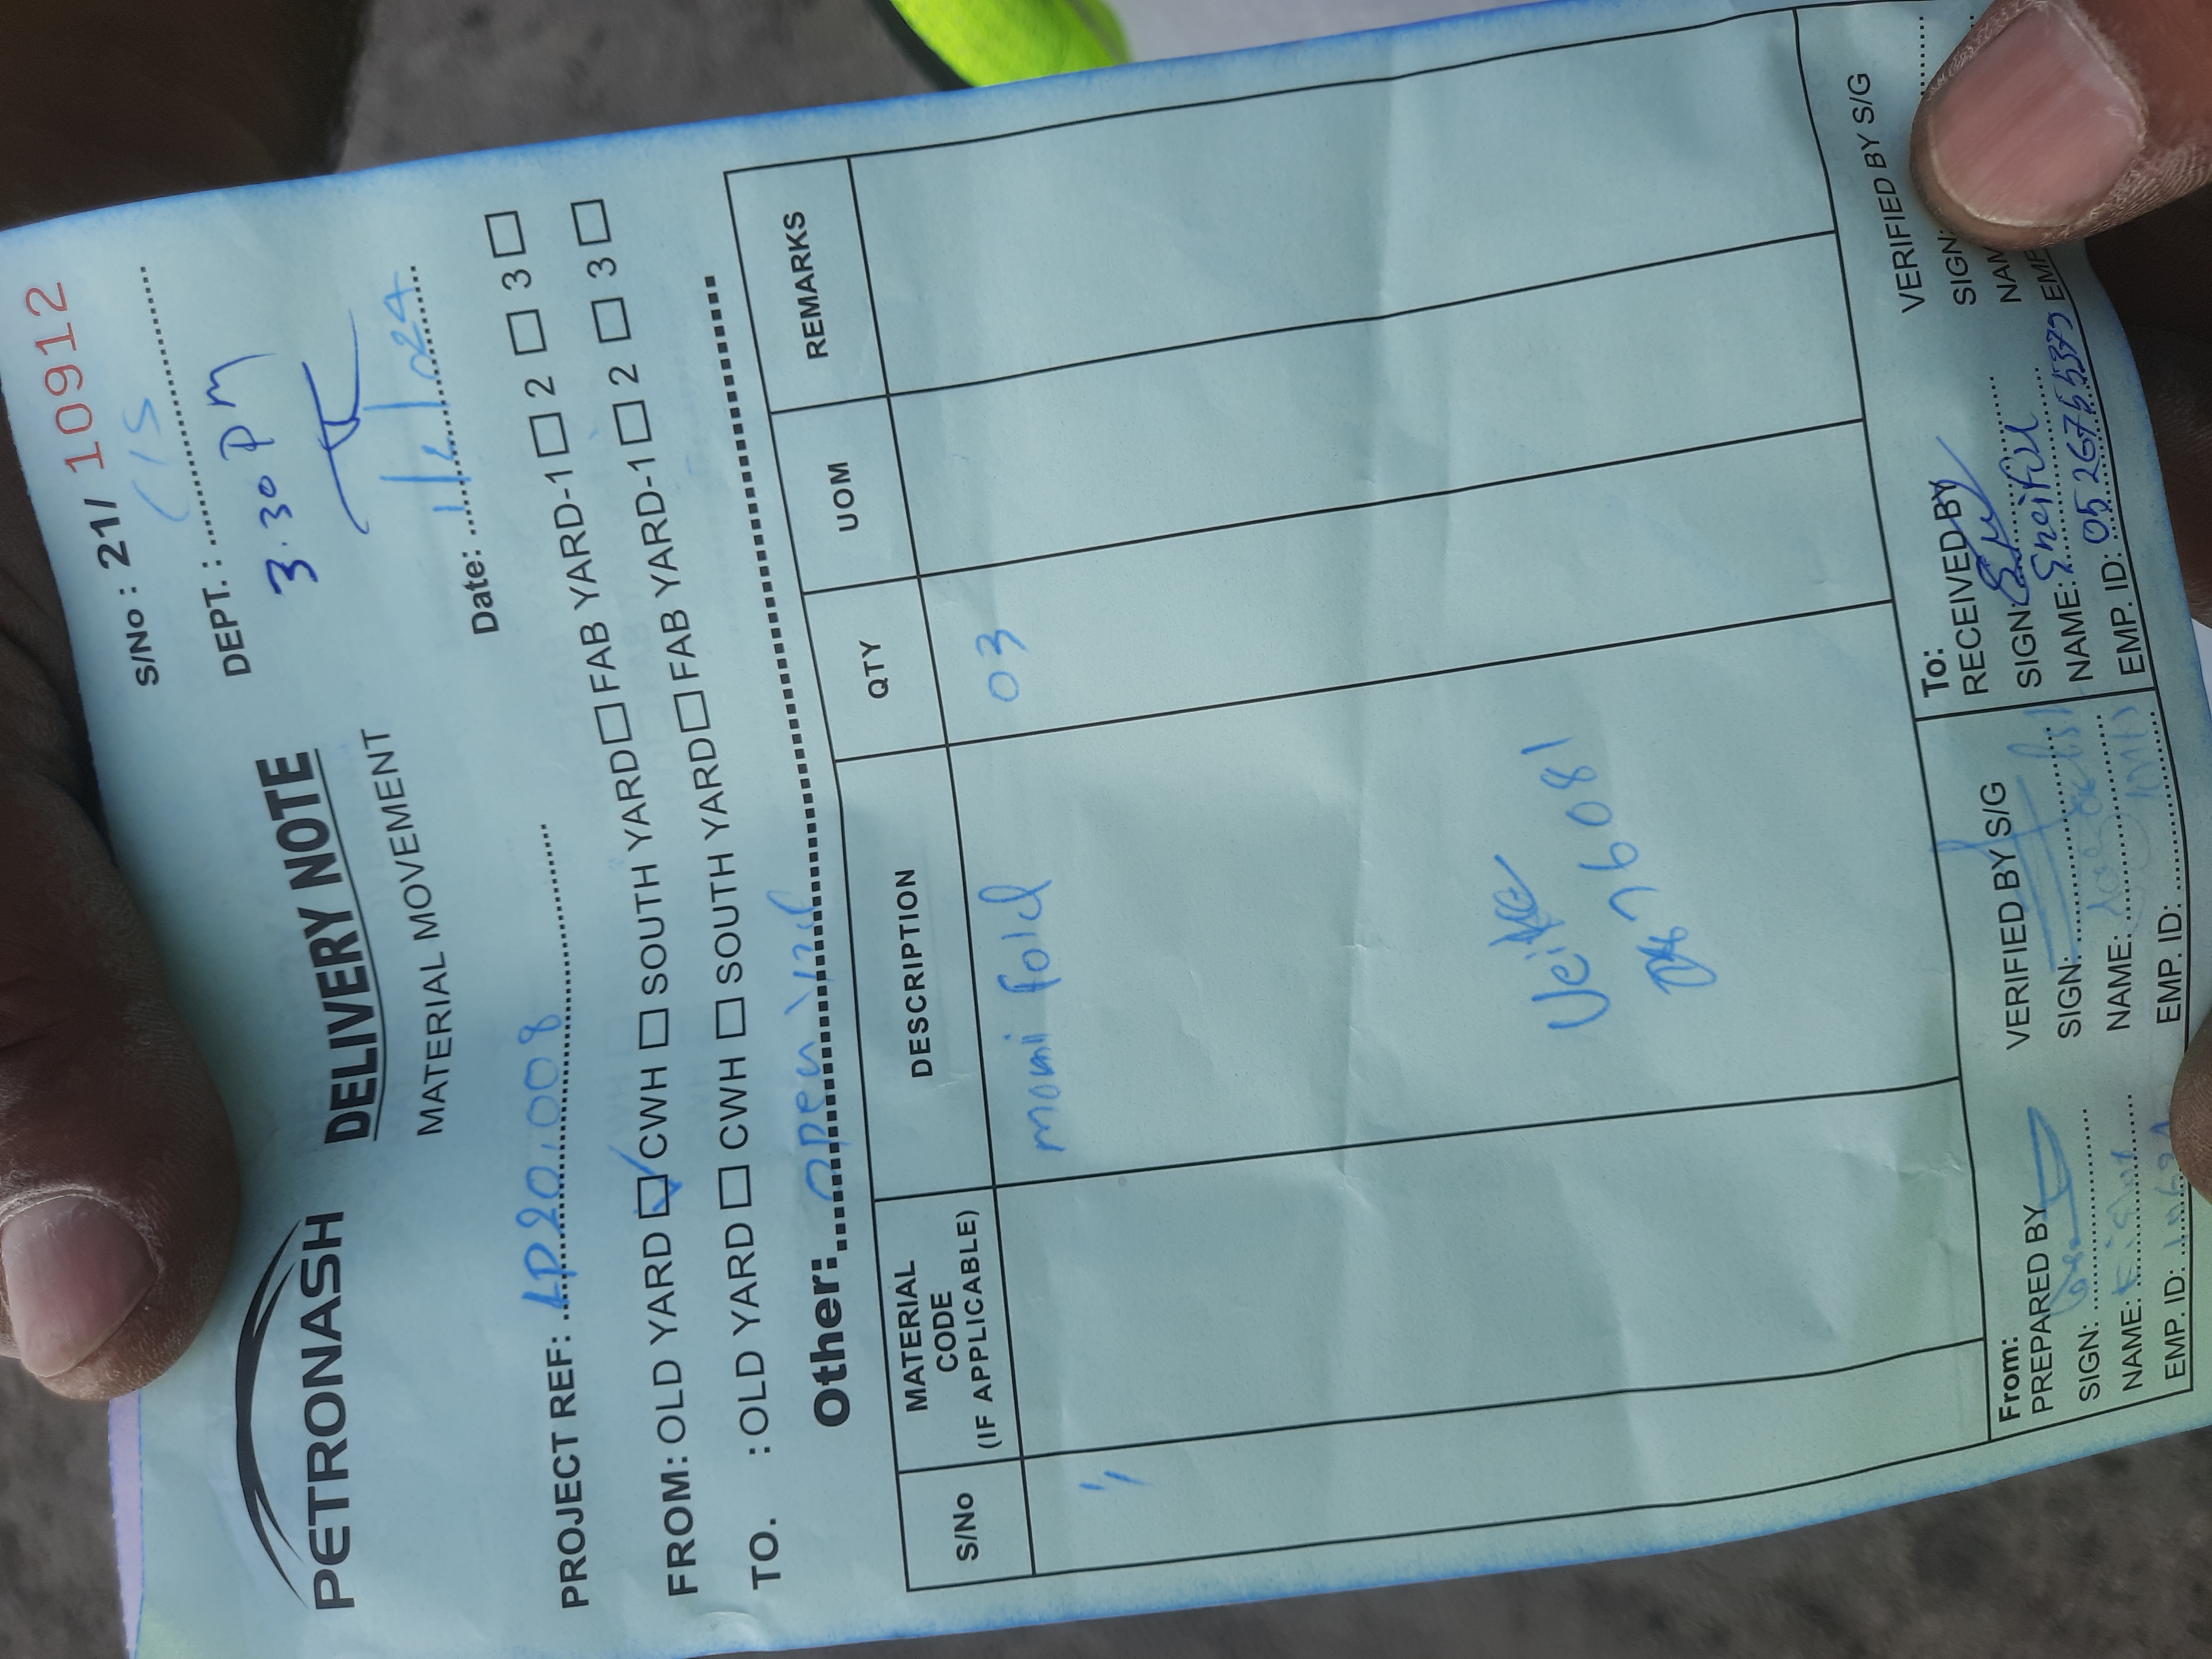 S/No : 21/ 10912
DEPT. :
3.30 PM
PETRONASH
DELIVERY NOTE
MATERIAL MOVEMENT
Date: 1/2/024
PROJECT REF: LP20,008
FROM: OLD YARD CWH SOUTH YARD FAB YARD-1 2 3
TO. : OLD YARD CWH SOUTH YARD FAB YARD-1 2 3
Other: open yard
S/No MATERIAL CODE (IF APPLICABLE) DESCRIPTION QTY UOM REMARKS
momi fold 03
876081
From:
PREPARED BY
SIGN:
NAME:
EMP. ID:
VERIFIED BY S/G
SIGN:
NAME:
EMP. ID:
To:
RECEIVED BY
SIGN:
NAME:
EMP. ID: 0526755379
VERIFIED BY S/G
SIGN:
NAM
EMP